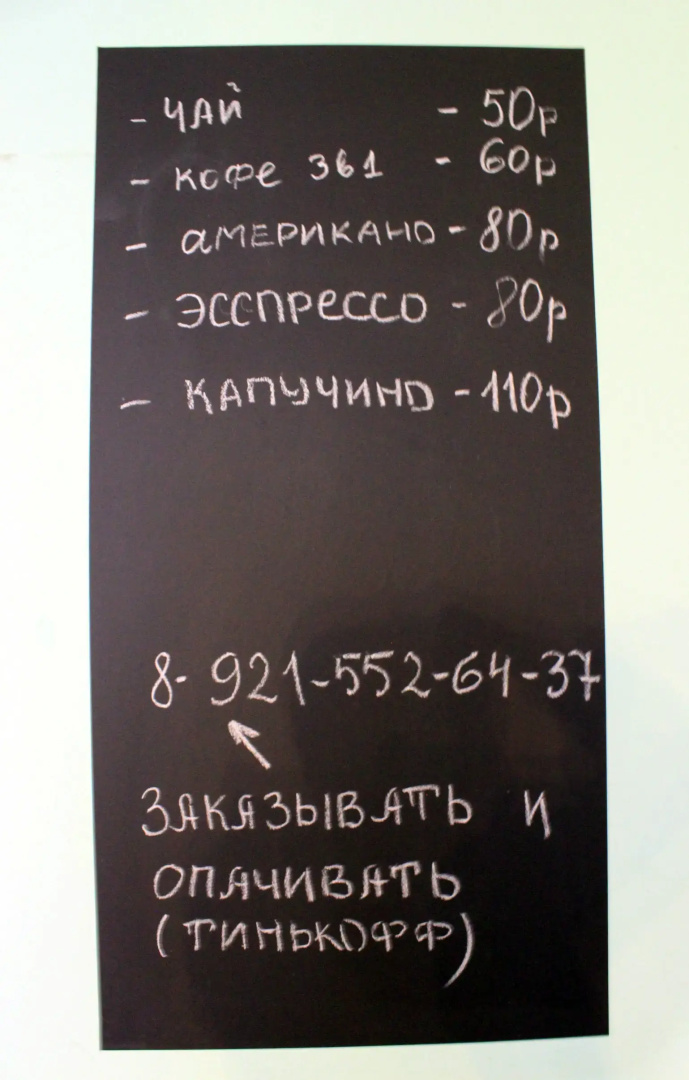 - ЧАЙ - 50р
- кофе 3в1 - 60р
- АМЕРИКАНО - 80р
- ЭССПРЕССО - 80р
- КАПУЧИНО - 110р
8-921-552-64-37
ЗАКАЗЫВАТЬ И
ОПАЧИВАТЬ
(ТИНЬКОФФ)